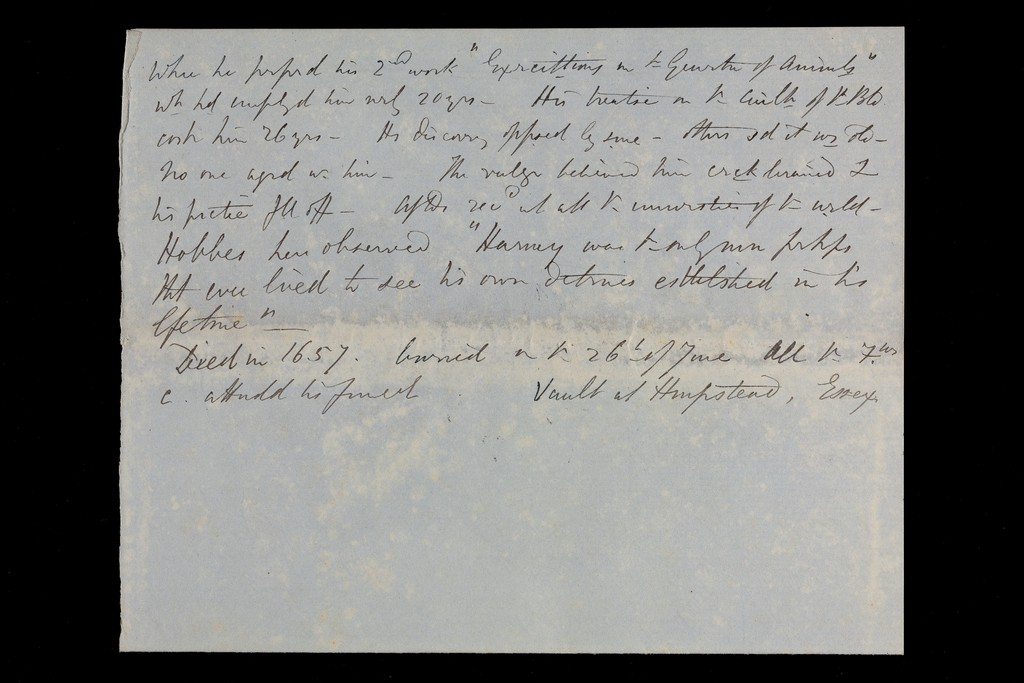 Where he prepard his 2nd work "Exercitations on th Generatn of Animals"
wh had employd him nrly 20 yrs - His treatise on th Circlth of th Bld
cost him 26 yrs - His discovery opposed by some - others sd it ws old -
No one agrd w him - The vulgr believed him crack brained &
his practice fell off - recd at all th universities of th wrld -
Hobbes hen observed "Harvey was th only man prhps
tht ever lived to see his own doctrines established in his
lifetime" -
Died in 1657. burried on th 26th of June All th
c. attendd his funeral Vault at Hempstead, Essex